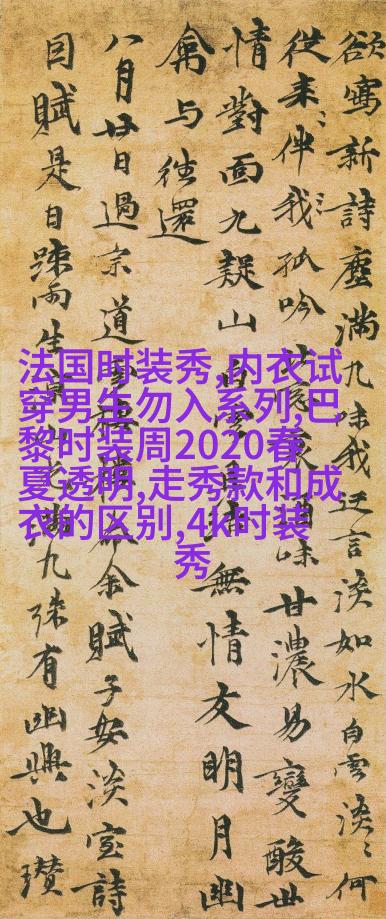 法国时装秀,内衣试
穿男生勿入系列,巴
黎时装周2020春
夏透明,走秀款和成
衣的区别,4k时装
秀
欲寫新詩塵滿九味我近言淡如水白雲淡〻何
從來〻伴我〻孤吟世味甘濃易變酸世
情對面九疑山白雲無情友明月幽
禽与往還
八月廿日過宗道余賦予安淡室詩
因賦是日疎雨生九殊有幽興也瓚